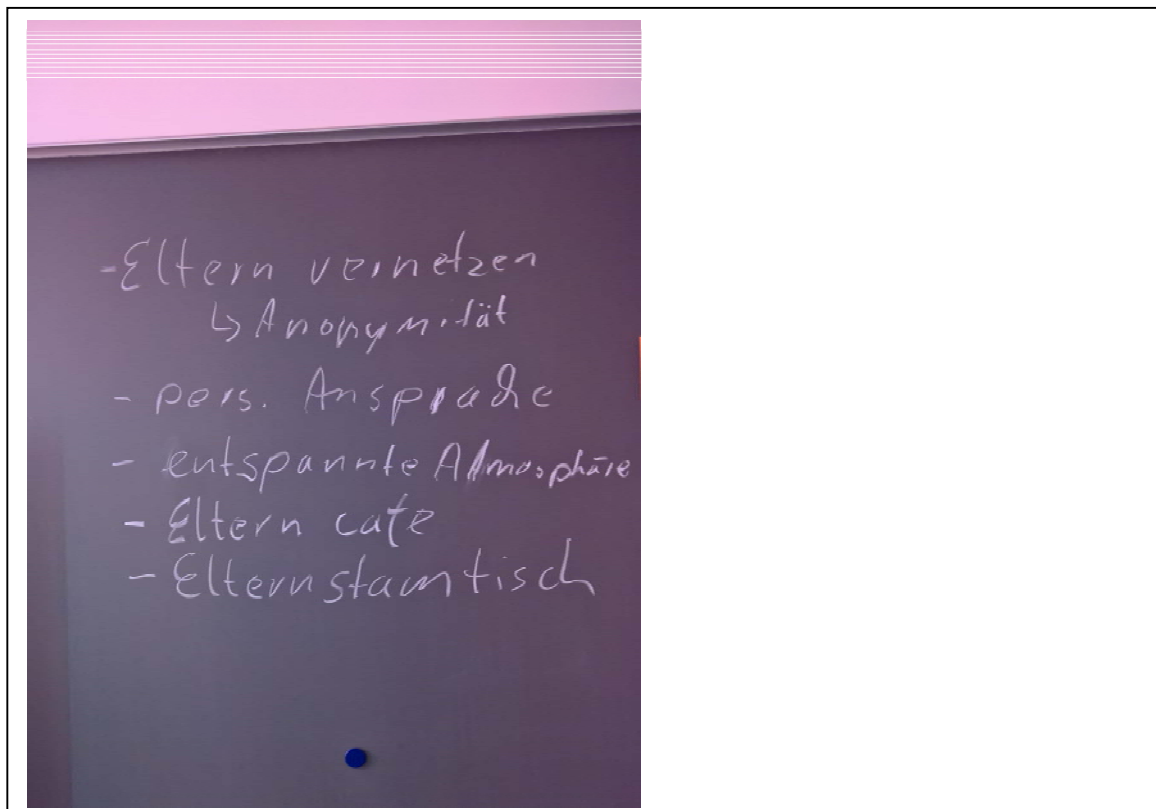 - Eltern vernetzen
↳ Anonymität
- pers. Ansprache
- entspannte Atmosphäre
- Eltern cafe
- Elternstamtisch